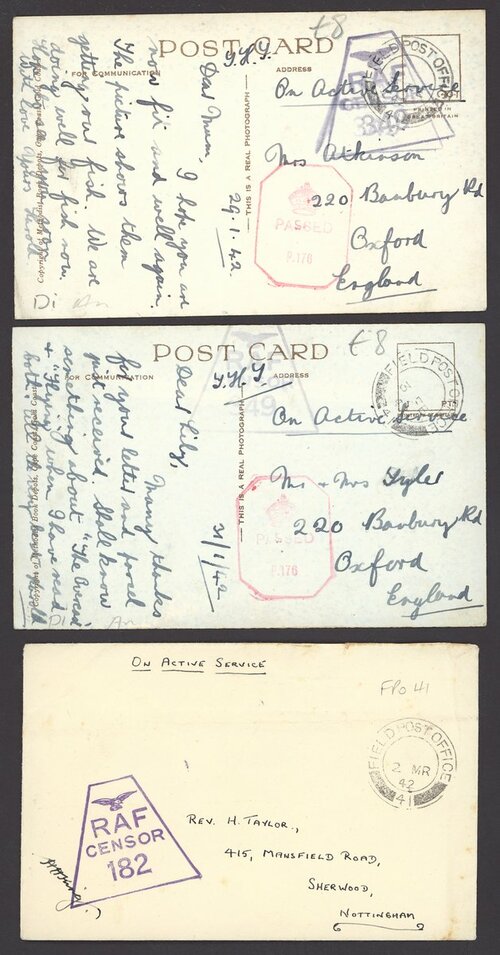 £8
POST CARD
FOR COMMUNICATION
ADDRESS
29.1.42
Dear Mum,
I hope you are
now fit and well again.
The picture shows them
getting our fish. We are
doing well for fish now.
With love Yours
THIS IS A REAL PHOTOGRAPH
FIELD POST OFFICE
RAF
CENSOR
349
PRINTED IN
GREAT BRITAIN
On Active Service
Mrs Atkinson
220 Banbury Rd
Oxford
England
PASSED
P.176
Di An
£8
POST CARD
FOR COMMUNICATION
ADDRESS
31/1/42
Dear Lily,
Many thanks
for your letter and parcel
just received. Shall know
something about "The Evercan"
& "Flying" when I have read
both.
THIS IS A REAL PHOTOGRAPH
349
FIELD POST OFFICE
On Active Service
Mr + Mrs Tyler
220 Banbury Rd
Oxford
England
PASSED
P.176
Di An
ON ACTIVE SERVICE
FPO 41
FIELD POST OFFICE
2 MR
42
41
RAF
CENSOR
182
REV. H. TAYLOR.,
415, MANSFIELD ROAD,
SHERWOOD,
NOTTINGHAM